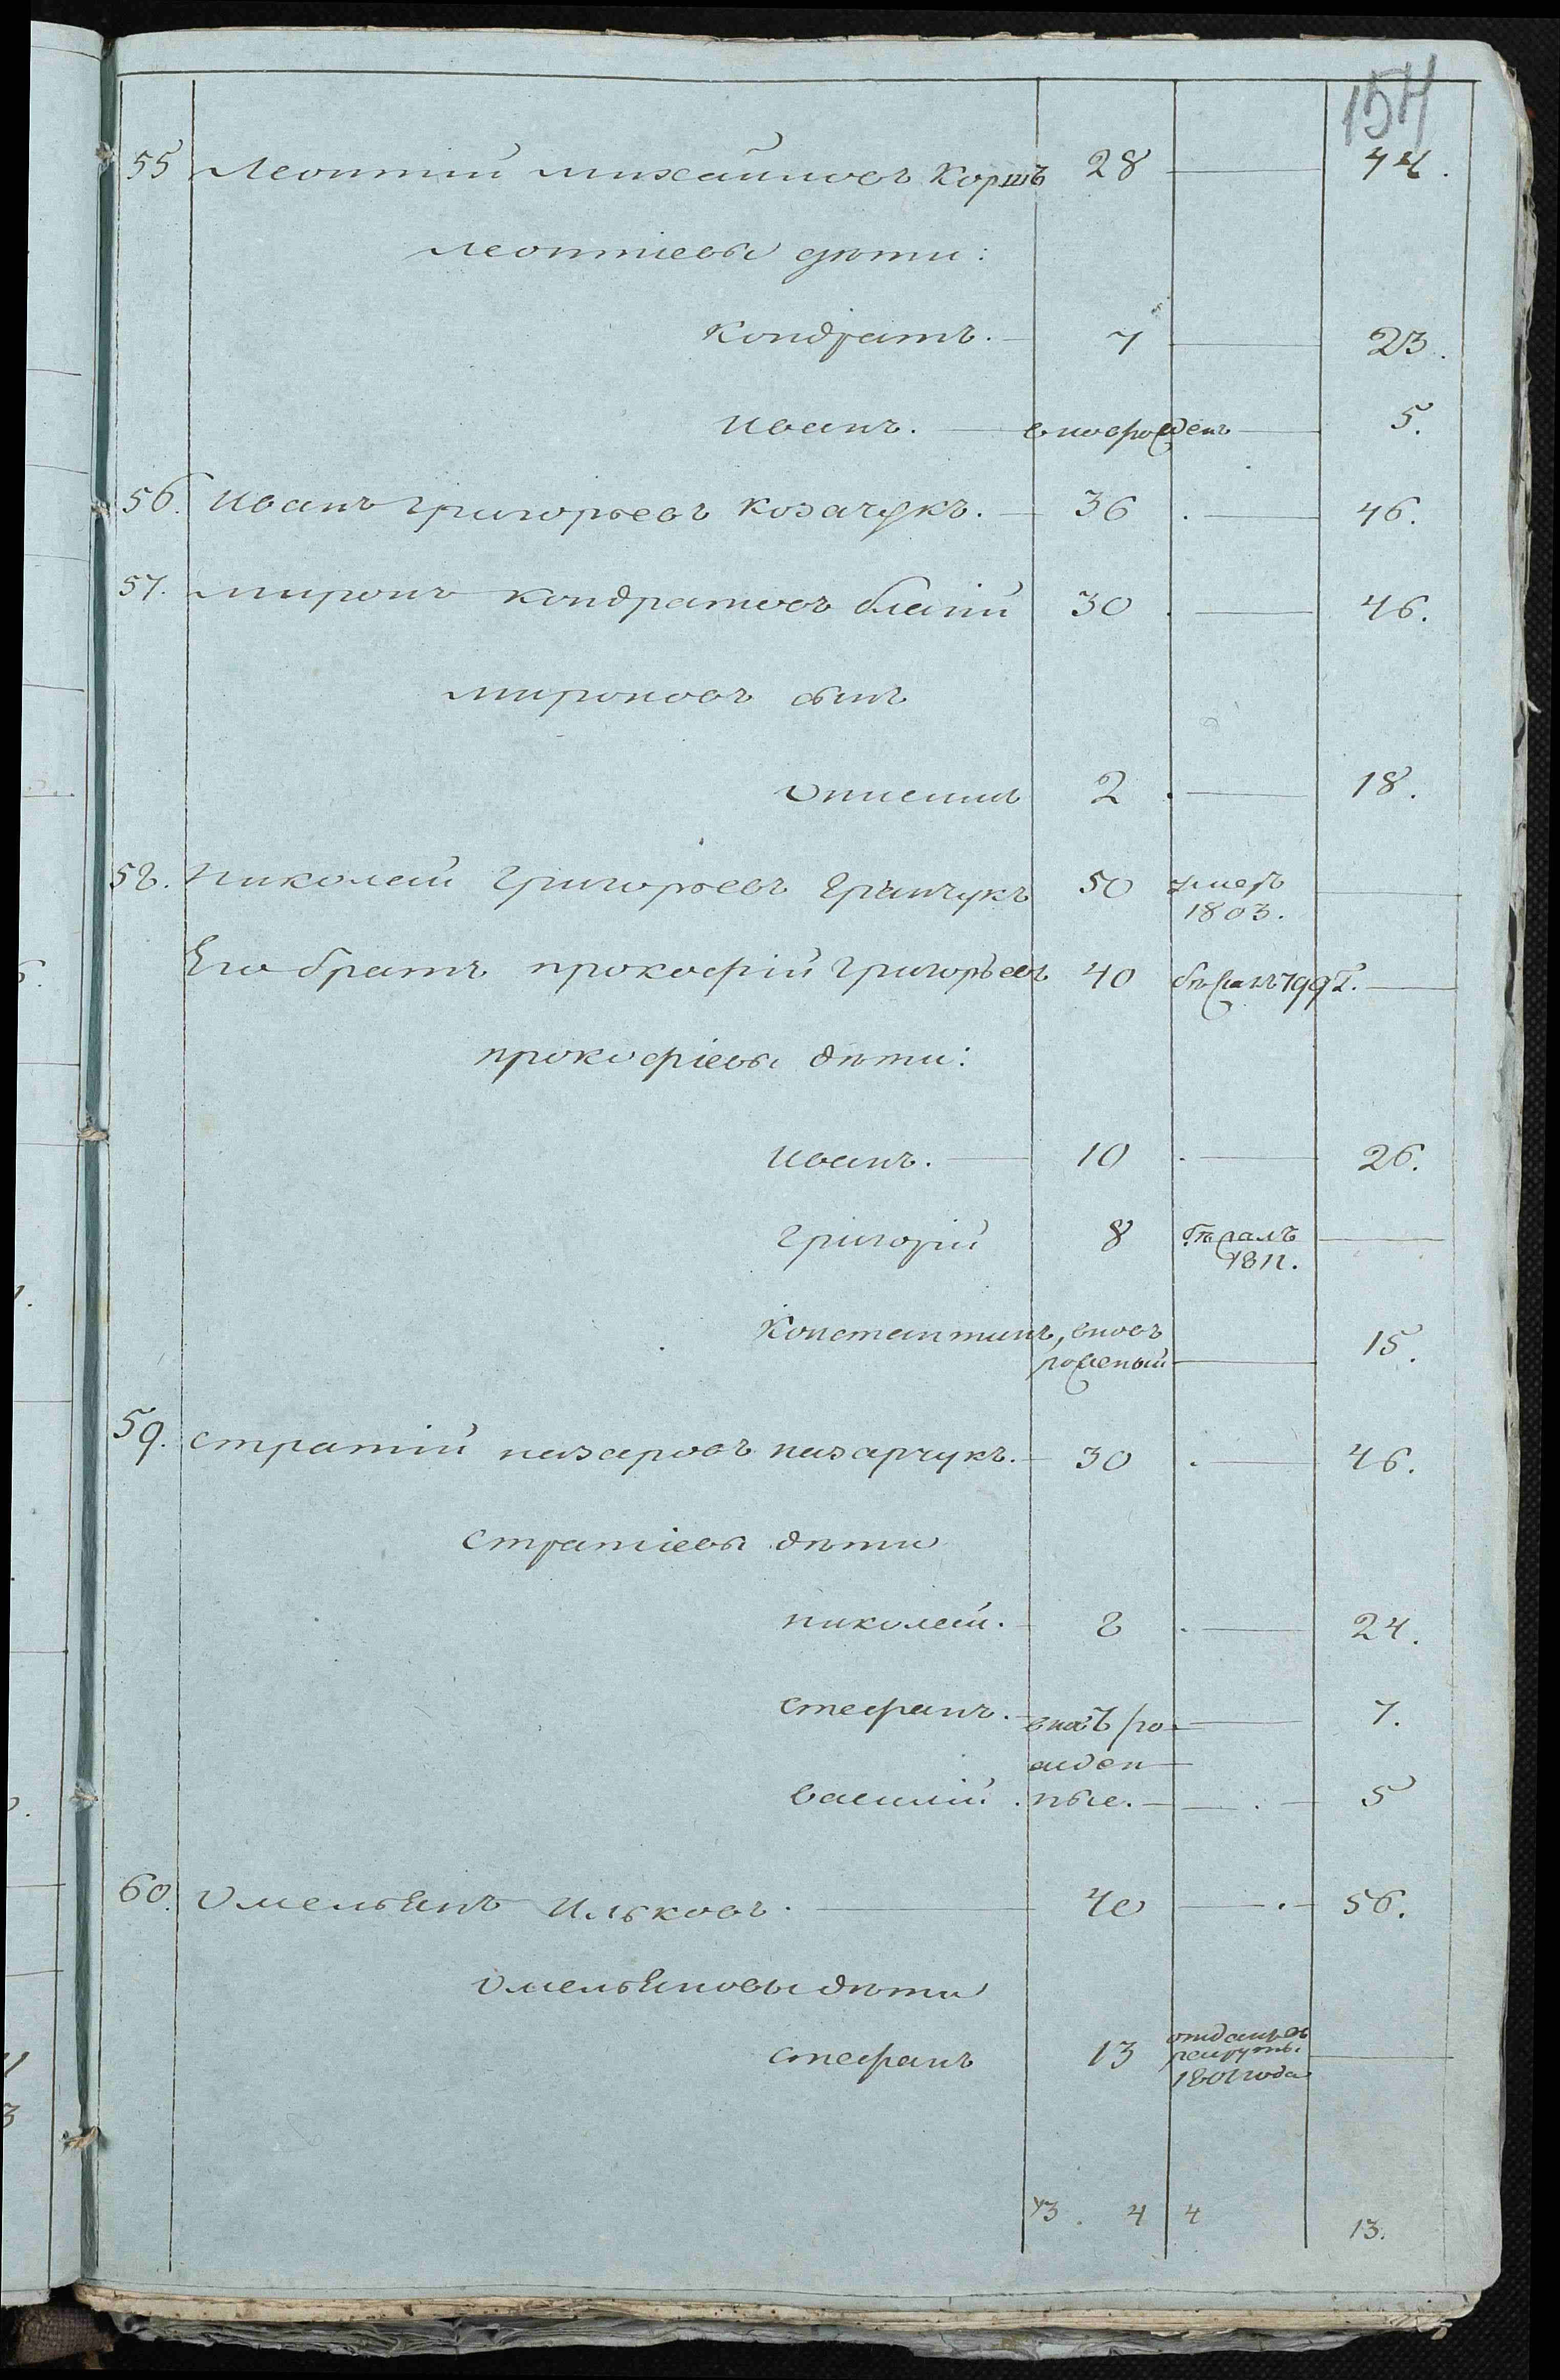 154
55 Леонтий Михайловъ Коршъ 28 — 44.
Леонтіевы дѣти:
Кондратъ. 7 — 23.
Иванъ. — вновь рожденъ — 5.
56. Иванъ Григорьевъ Козачукъ. 36 — 46.
57. Миронъ Кондратовъ 30 — 46.
Мироновъ сынъ
2 — 18.
58. Николай Григорьевъ Гранчукъ 50 умеръ —
1803.
Его братъ Прокофій Григорьевъ 40 бѣжалъ 799 г. —
Прокофіевы дѣти:
Иванъ. — 10 — 26.
Григорій 8 бѣжалъ —
1811.
Константинъ, вновь 15.
рожденый —
59. Стратій Назаровъ Назарчукъ. — 30 — 46.
Стратіевы дѣти
Николай. — 8 — 24.
Стефанъ. — вновь ро- — 7.
жден
Василій. ные. — — 5
60. Омельянъ Ильковъ. — 40 — 56.
Омельяновы дѣти
Стефанъ 13 отданъ въ
рекруты. —
1801 года
13. 4 4 13.